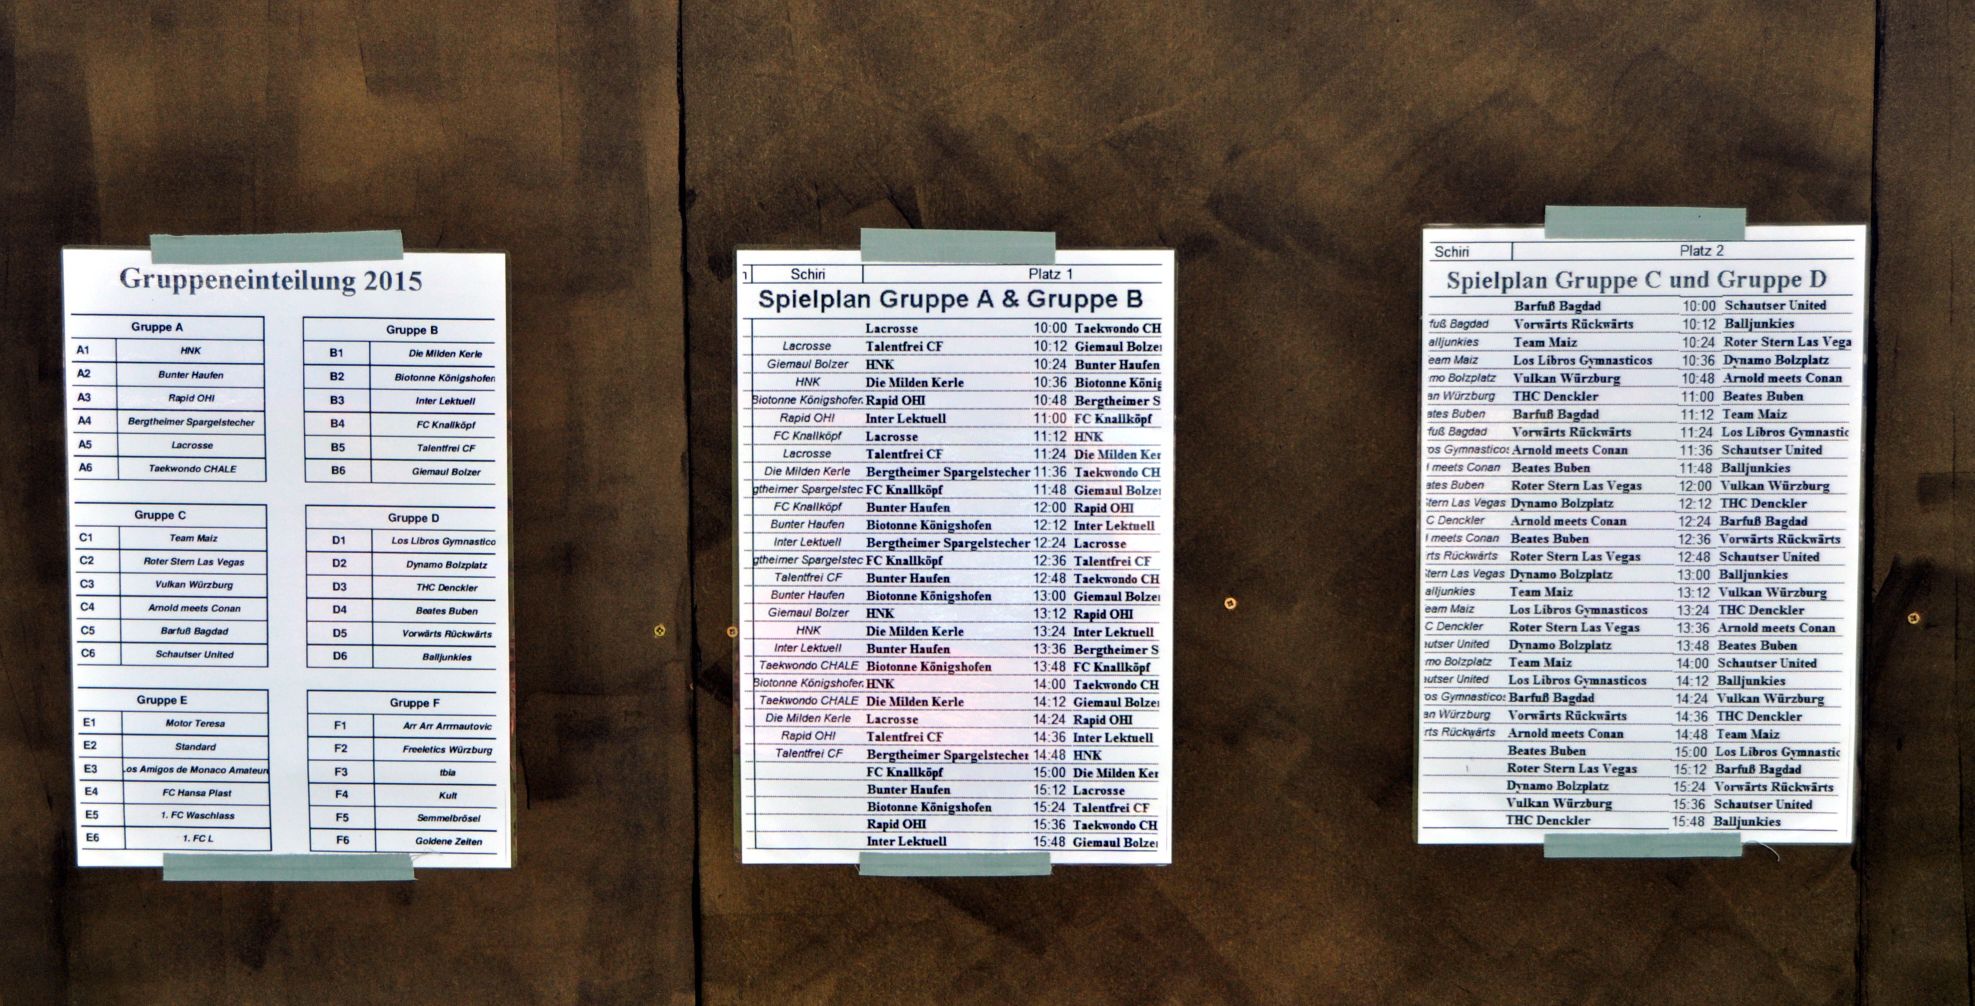 Gruppeneinteilung 2015
Gruppe A
A1 HNK
A2 Bunter Haufen
A3 Rapid OHI
A4 Bergtheimer Spargelstecher
A5 Lacrosse
A6 Taekwondo CHALE
Gruppe B
B1 Die Milden Kerle
B2 Biotonne Königshofen
B3 Inter Lektuell
B4 FC Knallköpf
B5 Talentfrei CF
B6 Giemaul Bolzer
Gruppe C
C1 Team Maiz
C2 Roter Stern Las Vegas
C3 Vulkan Würzburg
C4 Arnold meets Conan
C5 Barfuß Bagdad
C6 Schautser United
Gruppe D
D1 Los Libros Gymnastico
D2 Dynamo Bolzplatz
D3 THC Denckler
D4 Beates Buben
D5 Vorwärts Rückwärts
D6 Balljunkies
Gruppe E
E1 Motor Teresa
E2 Standard
E3 os Amigos de Monaco Amateur
E4 FC Hansa Plast
E5 1. FC Waschlass
E6 1. FC L
Gruppe F
F1 Arr Arr Arrmautovic
F2 Freeletics Würzburg
F3 Ibia
F4 Kult
F5 Semmelbrösel
F6 Goldene Zeiten
Schiri Platz 1
Spielplan Gruppe A & Gruppe B
Lacrosse 10:00 Taekwondo CH
Lacrosse Talentfrei CF 10:12 Giemaul Bolze
Giemaul Bolzer HNK 10:24 Bunter Haufen
HNK Die Milden Kerle 10:36 Biotonne König
Biotonne Königshofer Rapid OHI 10:48 Bergtheimer S
Rapid OHI Inter Lektuell 11:00 FC Knallköpf
FC Knallköpf Lacrosse 11:12 HNK
Lacrosse Talentfrei CF 11:24 Die Milden Ker
Die Milden Kerle Bergtheimer Spargelstecher 11:36 Taekwondo CH
gtheimer Spargelstec FC Knallköpf 11:48 Giemaul Bolze
FC Knallköpf Bunter Haufen 12:00 Rapid OHI
Bunter Haufen Biotonne Königshofen 12:12 Inter Lektuell
Inter Lektuell Bergtheimer Spargelstecher 12:24 Lacrosse
gtheimer Spargelstec FC Knallköpf 12:36 Talentfrei CF
Talentfrei CF Bunter Haufen 12:48 Taekwondo CH
Bunter Haufen Biotonne Königshofen 13:00 Giemaul Bolze
Giemaul Bolzer HNK 13:12 Rapid OHI
HNK Die Milden Kerle 13:24 Inter Lektuell
Inter Lektuell Bunter Haufen 13:36 Bergtheimer S
Taekwondo CHALE Biotonne Königshofen 13:48 FC Knallköpf
Biotonne Königshofer HNK 14:00 Taekwondo CH
Taekwondo CHALE Die Milden Kerle 14:12 Giemaul Bolze
Die Milden Kerle Lacrosse 14:24 Rapid OHI
Rapid OHI Talentfrei CF 14:36 Inter Lektuell
Talentfrei CF Bergtheimer Spargelstecher 14:48 HNK
FC Knallköpf 15:00 Die Milden Ker
Bunter Haufen 15:12 Lacrosse
Biotonne Königshofen 15:24 Talentfrei CF
Rapid OHI 15:36 Taekwondo CH
Inter Lektuell 15:48 Giemaul Bolze
Schiri Platz 2
Spielplan Gruppe C und Gruppe D
Barfuß Bagdad 10:00 Schautser United
fuß Bagdad Vorwärts Rückwärts 10:12 Balljunkies
alljunkies Team Maiz 10:24 Roter Stern Las Vega
eam Maiz Los Libros Gymnasticos 10:36 Dynamo Bolzplatz
mo Bolzplatz Vulkan Würzburg 10:48 Arnold meets Conan
an Würzburg THC Denckler 11:00 Beates Buben
ates Buben Barfuß Bagdad 11:12 Team Maiz
fuß Bagdad Vorwärts Rückwärts 11:24 Los Libros Gymnastic
os Gymnasticos Arnold meets Conan 11:36 Schautser United
meets Conan Beates Buben 11:48 Balljunkies
ates Buben Roter Stern Las Vegas 12:00 Vulkan Würzburg
tern Las Vegas Dynamo Bolzplatz 12:12 THC Denckler
C Denckler Arnold meets Conan 12:24 Barfuß Bagdad
meets Conan Beates Buben 12:36 Vorwärts Rückwärts
rts Rückwärts Roter Stern Las Vegas 12:48 Schautser United
tern Las Vegas Dynamo Bolzplatz 13:00 Balljunkies
alljunkies Team Maiz 13:12 Vulkan Würzburg
eam Maiz Los Libros Gymnasticos 13:24 THC Denckler
C Denckler Roter Stern Las Vegas 13:36 Arnold meets Conan
utser United Dynamo Bolzplatz 13:48 Beates Buben
mo Bolzplatz Team Maiz 14:00 Schautser United
utser United Los Libros Gymnasticos 14:12 Balljunkies
os Gymnasticos Barfuß Bagdad 14:24 Vulkan Würzburg
an Würzburg Vorwärts Rückwärts 14:36 THC Denckler
rts Rückwärts Arnold meets Conan 14:48 Team Maiz
Beates Buben 15:00 Los Libros Gymnastic
Roter Stern Las Vegas 15:12 Barfuß Bagdad
Dynamo Bolzplatz 15:24 Vorwärts Rückwärts
Vulkan Würzburg 15:36 Schautser United
THC Denckler 15:48 Balljunkies